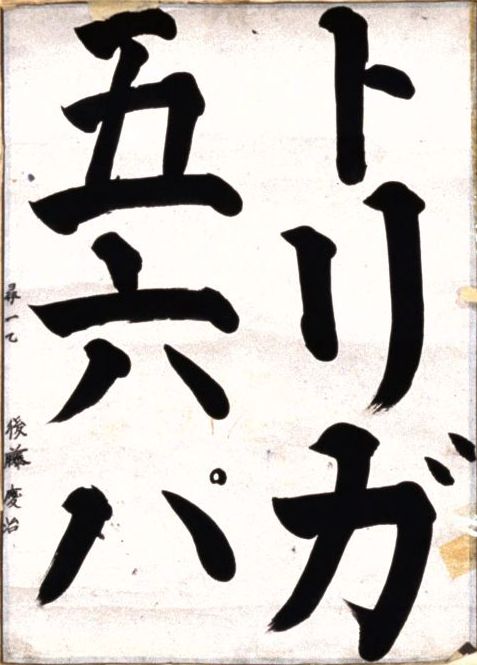 トリガ
五六パ
尋一乙 後藤慶治